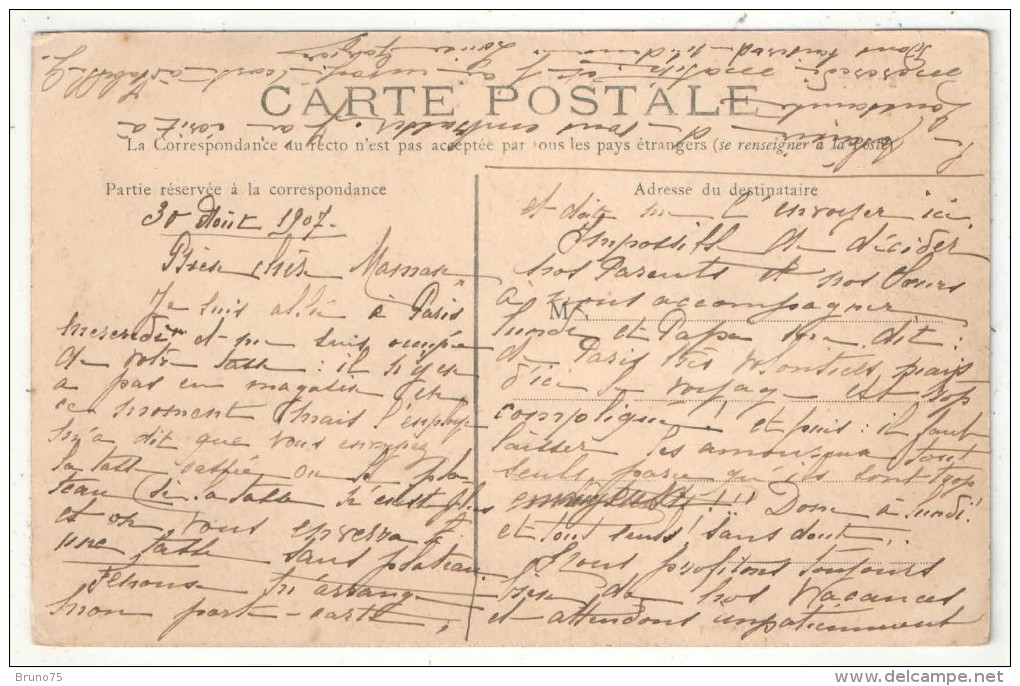 CARTE POSTALE
La Correspondance au recto n'est pas acceptée par tous les pays étrangers (se renseigner à la Poste)
Partie réservée à la correspondance
30 Août 1907.
Bien chère Maman
Je suis allée à Paris
mercredi et me suis occupée
de votre tasse : il n'y en
a pas en magasin en
ce moment mais l'employé
m'a dit que vous envoyiez
la tasse cassée ou le pla
teau si la tasse n'existe plus
et on vous enverra
une tasse sans plateau.
m'arrange
mon porte-carte,
Adresse du destinataire
et doit me l'envoyer ici.
Impossible de décider
nos Parents et nos Soeurs
à nous accompagner
M
lundi et Papa me dit :
de Paris très volontiers, mais
d'ici le voyage est trop
compliqué et puis : il faut
laisser les amoureux tout
seuls parce qu'ils sont trop
ennuyeux !!! Donc à lundi
et tout seuls ! sans doute.
Nous profitons toujours
bien de nos vacances
et attendons impatiemment
Bruno75
delcampe.net